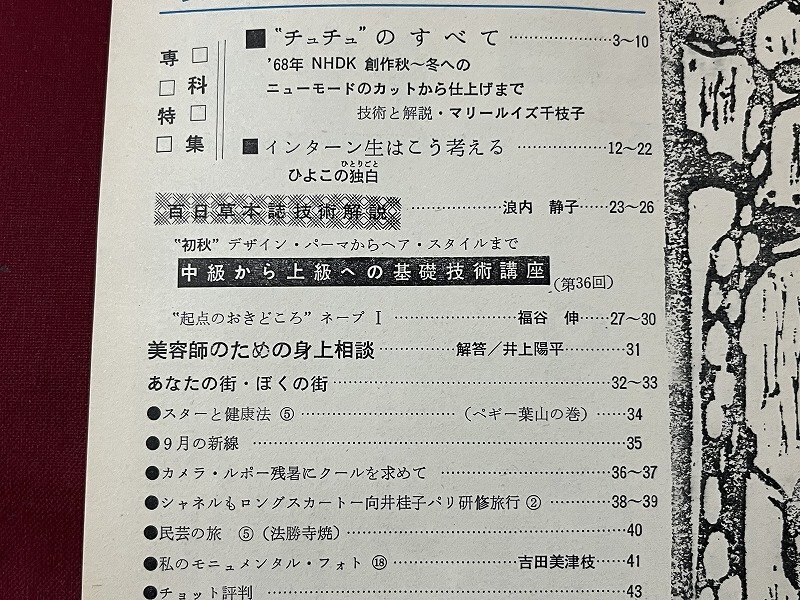 専科特集
■ “チュチュ”のすべて……………3~10
’68年 NHDK 創作秋~冬への
ニューモードのカットから仕上げまで
技術と解説・マリールイズ千枝子
■ インターン生はこう考える………………12~22
ひよこの独白
ひとりごと
百日草本誌技術解説………………浪内 静子……23~26
“初秋” デザイン・パーマからヘア・スタイルまで
中級から上級への基礎技術講座(第36回)
“起点のおきどころ” ネープ I………………福谷 伸……27~30
美容師のための身上相談……………解答/井上陽平…………31
あなたの街・ぼくの街………………32~33
●スターと健康法 ⑤………………(ペギー葉山の巻)……34
●9月の新線………………35
●カメラ・ルポー残暑にクールを求めて………………36~37
●シャネルもロングスカートー向井桂子パリ研修旅行 ②…………38~39
●民芸の旅 ⑤(法勝寺焼)………………40
●私のモニュメンタル・フォト ⑱………………吉田美津枝……41
●チョット評判………………43